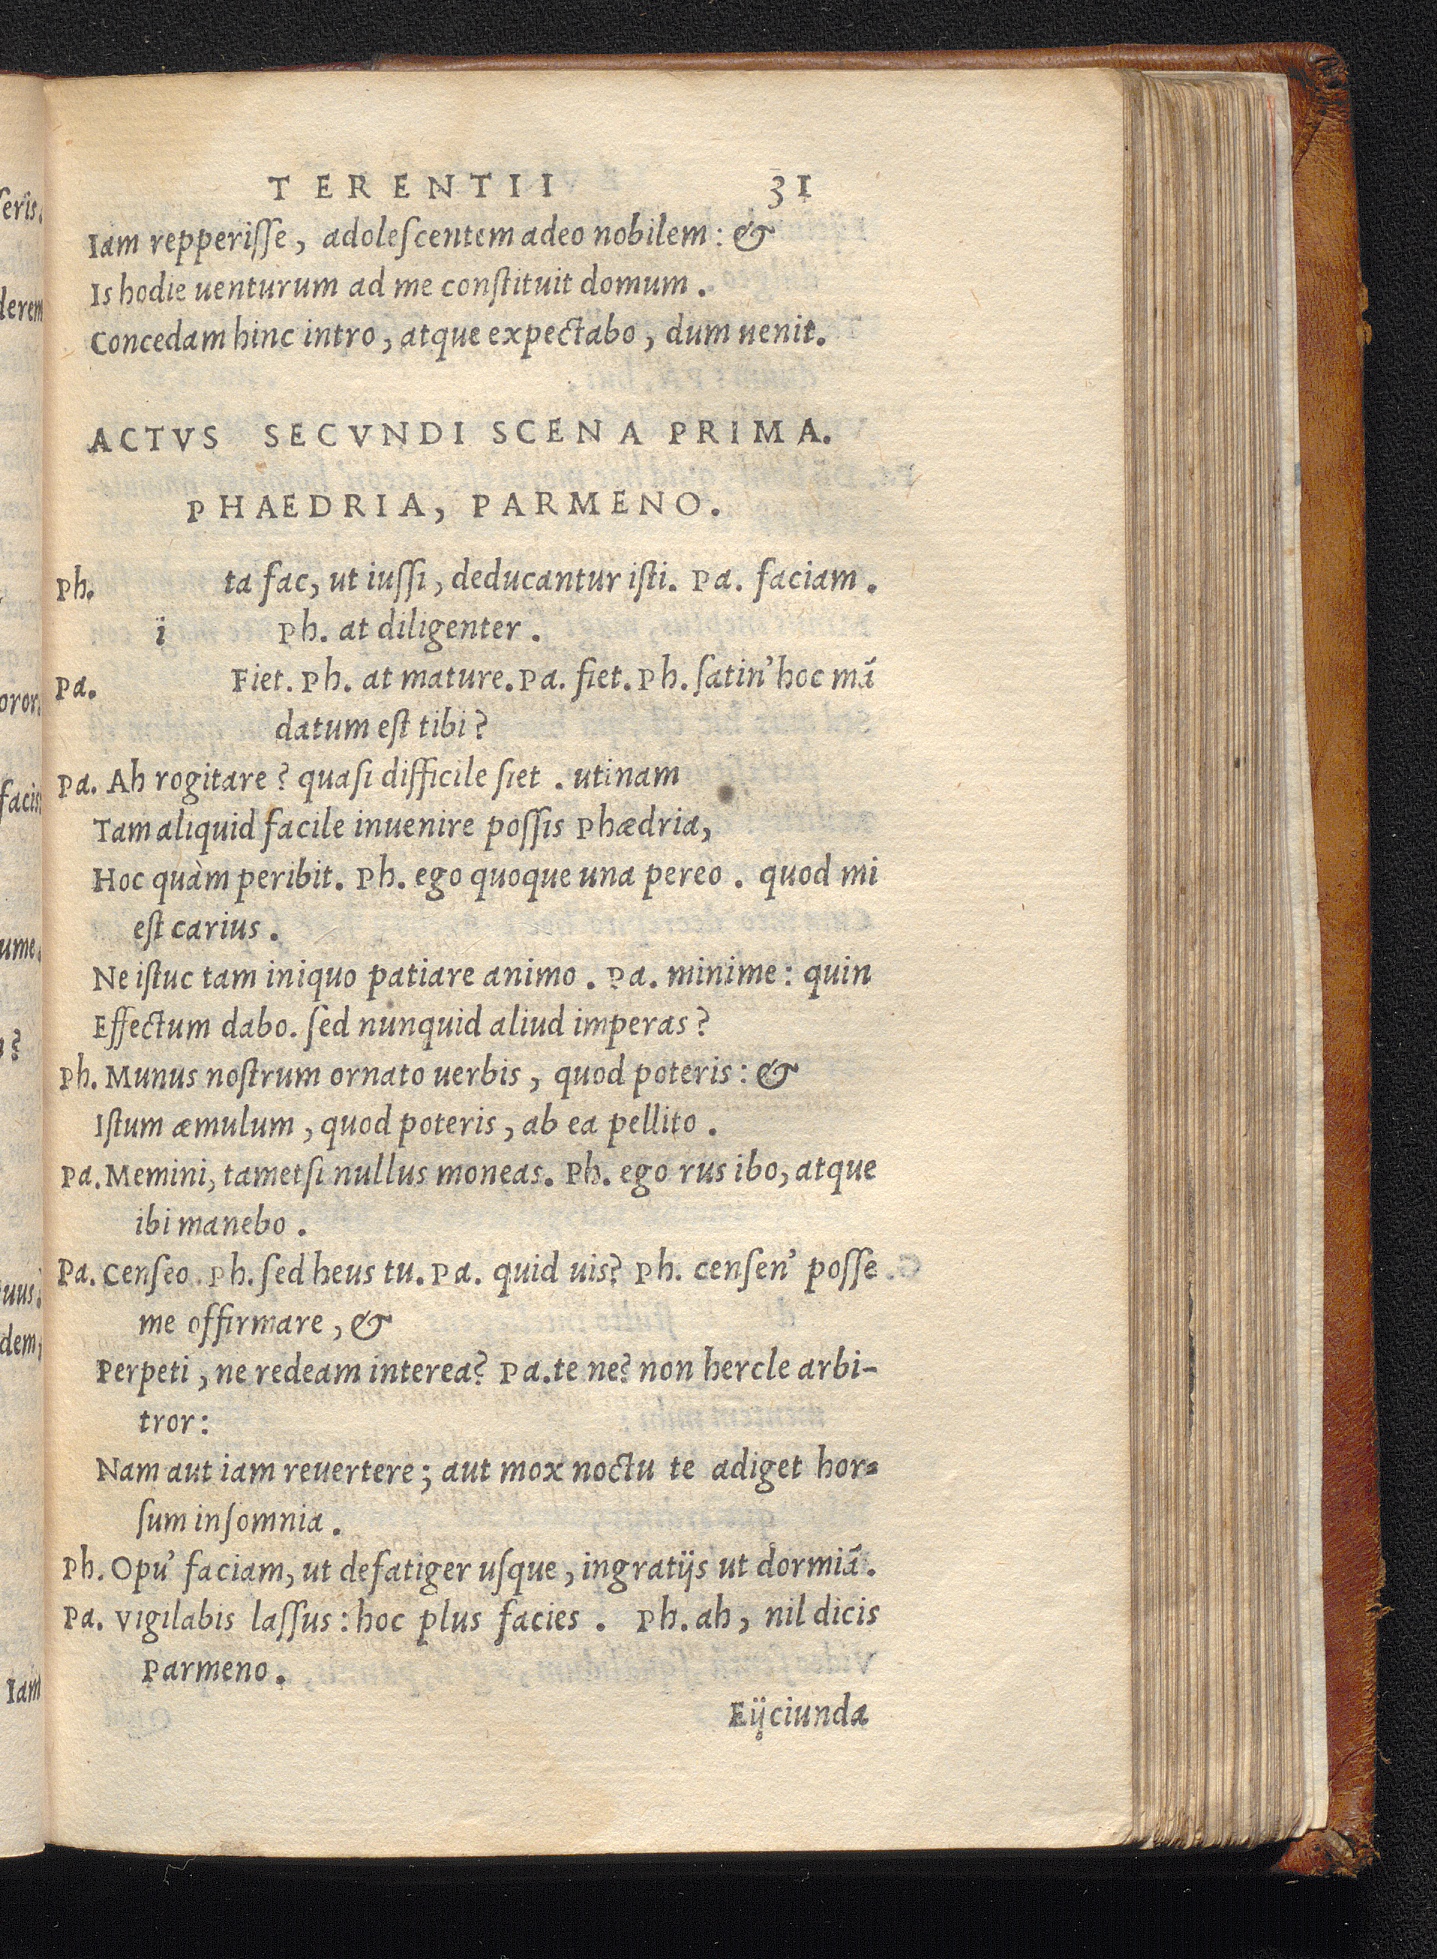 TERENTII 31
Iam repperiſſe, adoleſcentem adeo nobilem: &
Is hodie uenturum ad me conſtituit domum.
Concedam hinc intro, atque expectabo, dum uenit.
ACTVS SECVNDI SCENA PRIMA.
PHAEDRIA, PARMENO.
Ph. ta fac, ut iuſſi, deducantur iſti. Pa. faciam.
i Ph. at diligenter.
Pa. Fiet. Ph. at mature. Pa. fiet. Ph. ſatin' hoc mā
datum eſt tibi?
Pa. Ah rogitare? quaſi difficile ſiet. utinam
Tam aliquid facile inuenire poſſis Phædria,
Hoc quàm peribit. Ph. ego quoque una pereo. quod mi
eſt carius.
Ne iſtuc tam iniquo patiare animo. Pa. minime: quin
Effectum dabo. ſed nunquid aliud imperas?
Ph. Munus noſtrum ornato uerbis, quod poteris: &
Iſtum æmulum, quod poteris, ab ea pellito.
Pa. Memini, tametſi nullus moneas. Ph. ego rus ibo, atque
ibi manebo.
Pa. Cenſeo. Ph. ſed heus tu. Pa. quid uis? Ph. cenſen' poſſe
me offirmare, &
Perpeti, ne redeam interea? Pa. te ne? non hercle arbi-
tror:
Nam aut iam reuertere; aut mox noctu te adiget hor-
ſum inſomnia.
Ph. Opu' faciam, ut defatiger uſque, ingratijs ut dormiā.
Pa. Vigilabis laſſus: hoc plus facies. Ph. ah, nil dicis
Parmeno.
Eijciunda